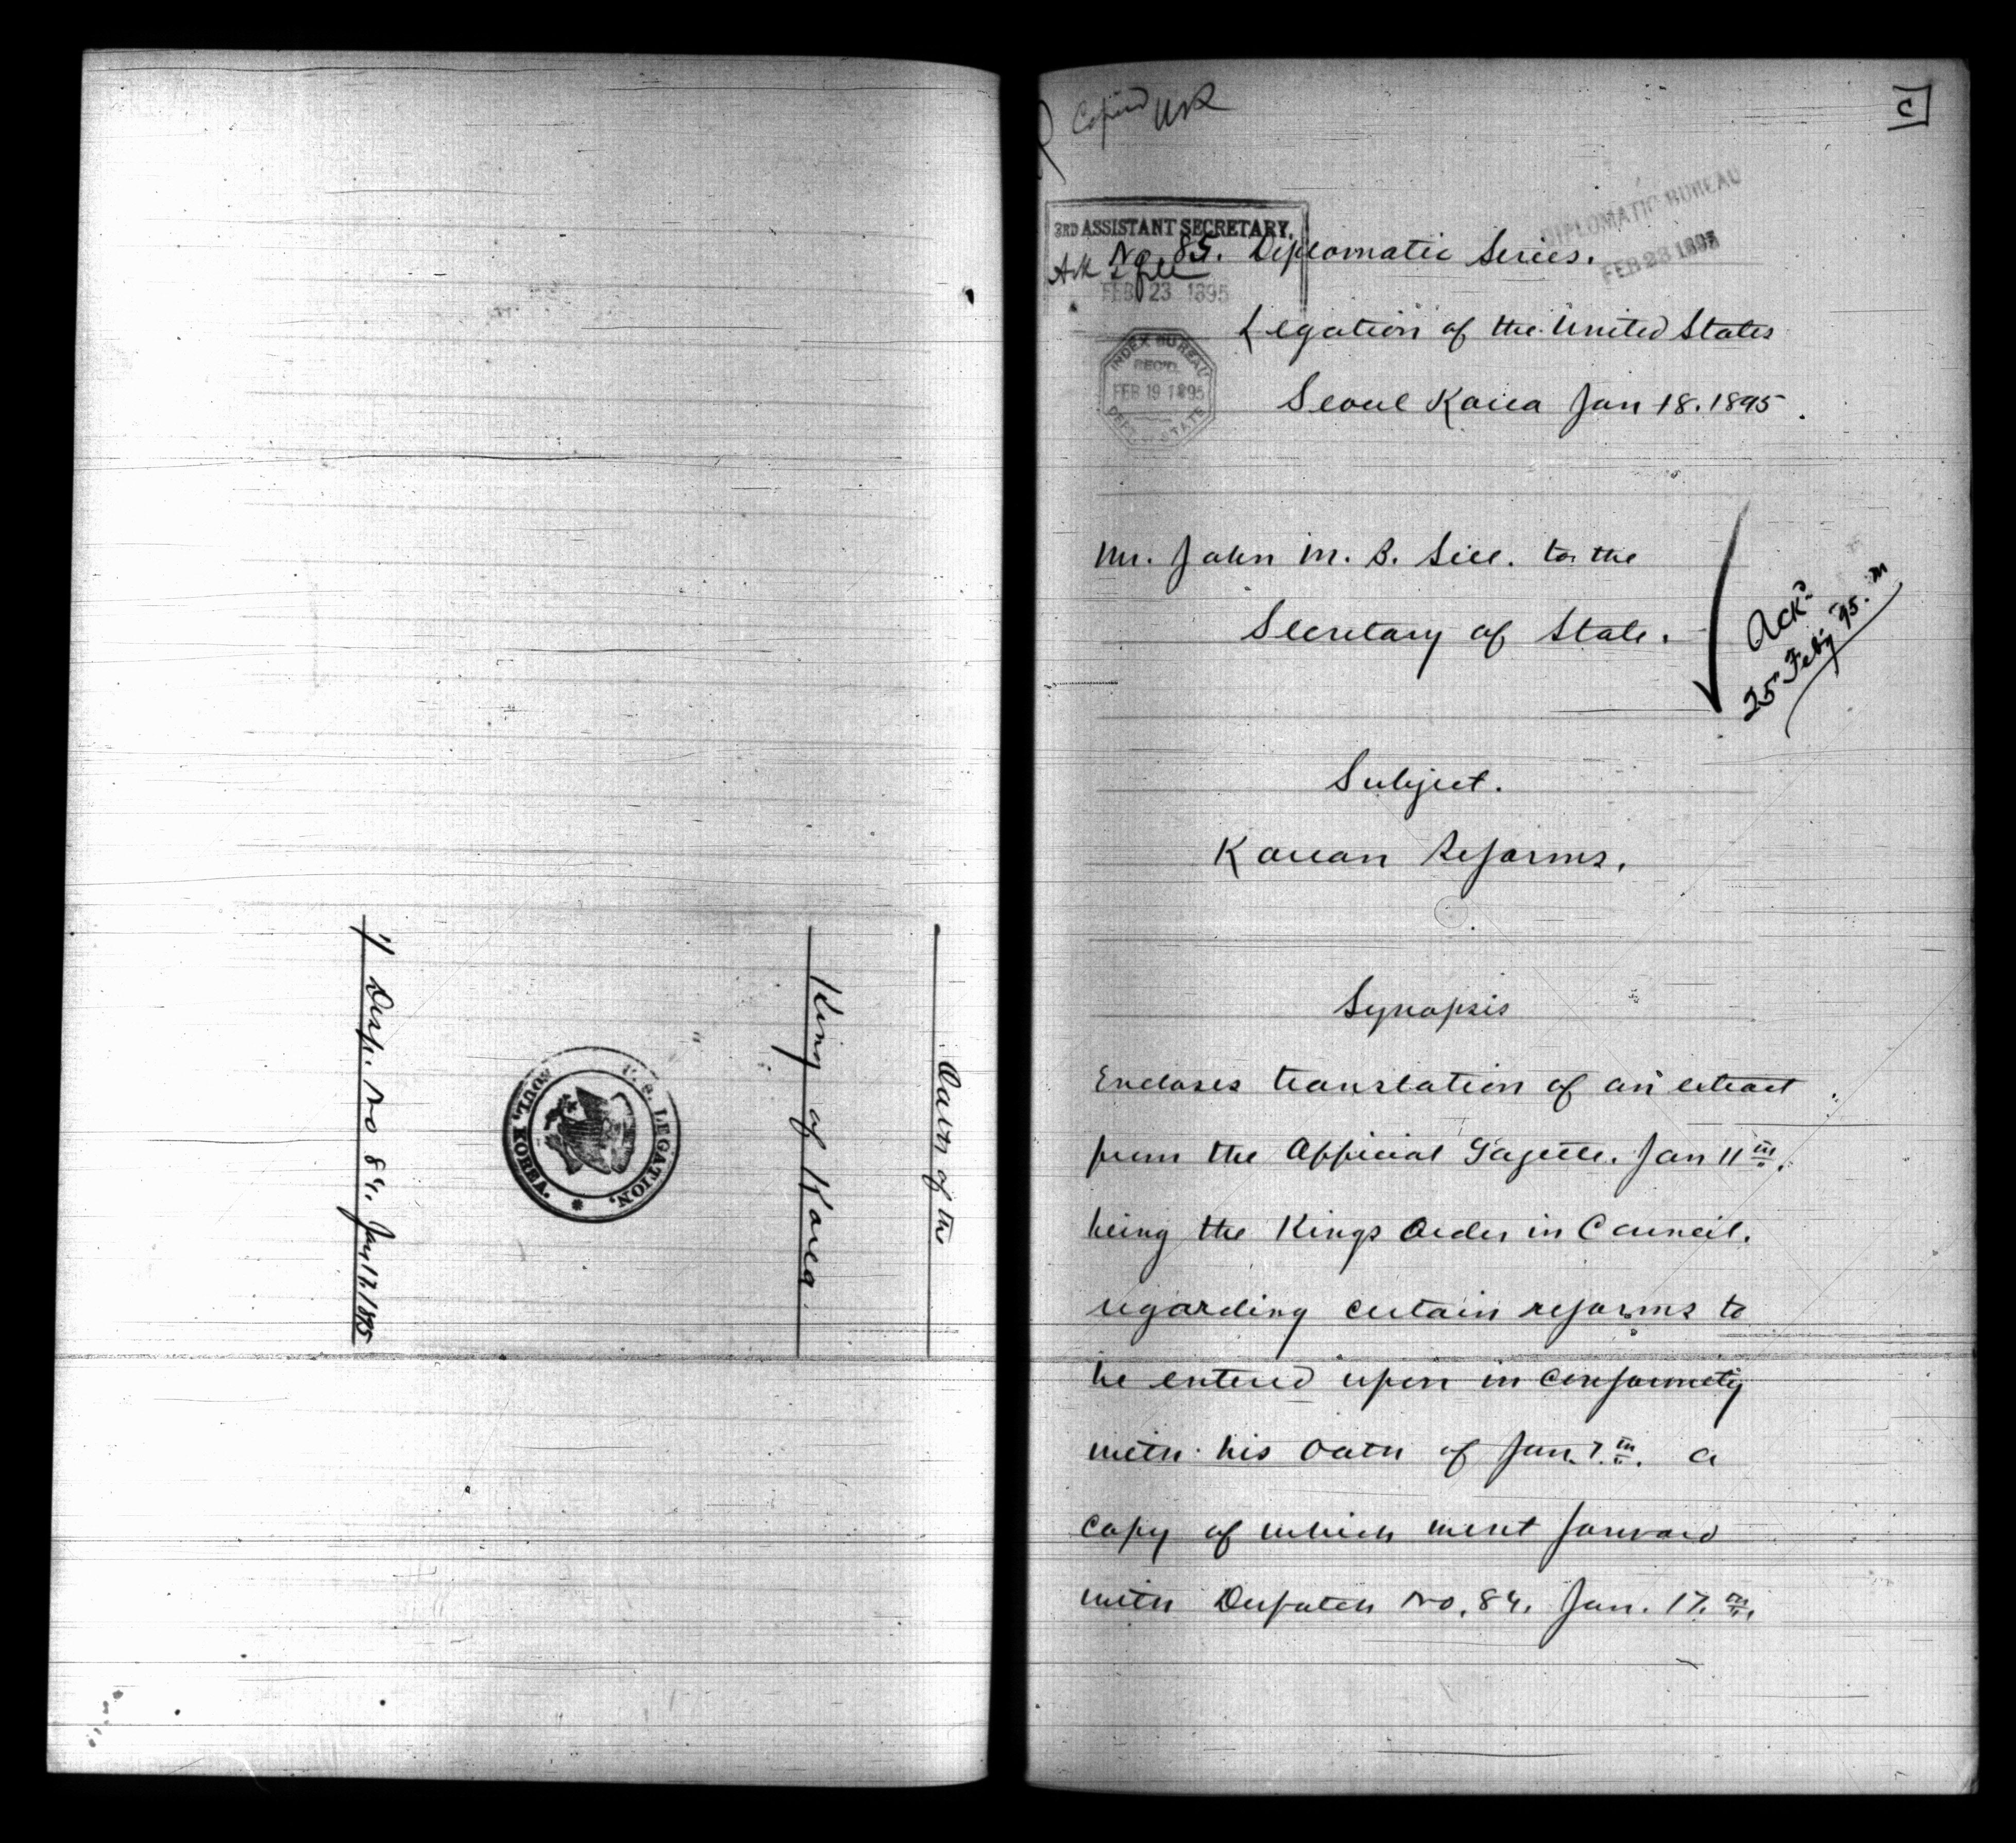 Oath of the
King of Korea.
U. S. LEGATION,
SOUL, KOREA.
1/ Desp. No 84. Jan 17. 1895
Copied
C
3RD ASSISTANT SECRETARY,
FEB 23 1895
DIPLOMATIC BUREAU
FEB 23 1895
No. 85. Diplomatic Series.
Legation of the United States
INDEX BUREAU
REC'D.
FEB 19 1895
DEPT. STATE
Seoul Korea Jan 18. 1895.
Mr. John M. B. Sill. to the
Secretary of State.
Ack'd
25 Feb'y '95.
Subject.
Korean Reforms.
Synopsis
Encloses translation of an extract
from the Official Gazette. Jan 11th.
being the Kings Order in Council.
regarding certain reforms to
be entered upon in conformity
with his oath of Jan. 7th. a
copy of which went forward
with Despatch No. 84. Jan. 17th.